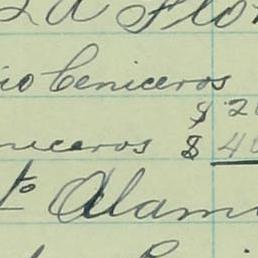 La Flo
io Ceniceros
$ 2
niceros $ 40
to Alam